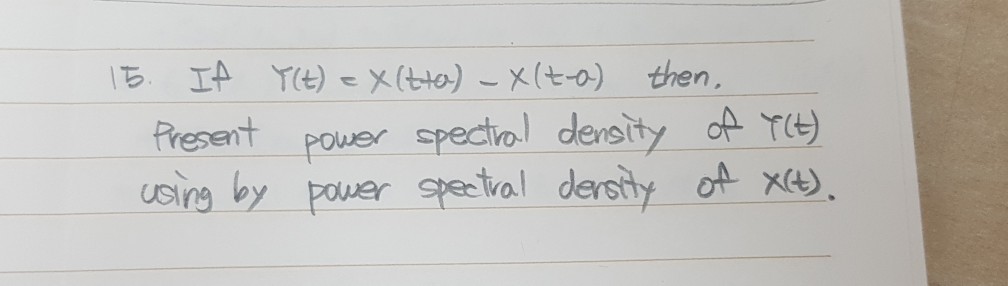 15. If Y(t) = X(t+a) - X(t-a) then,
Present power spectral density of Y(t)
using by power spectral density of X(t).